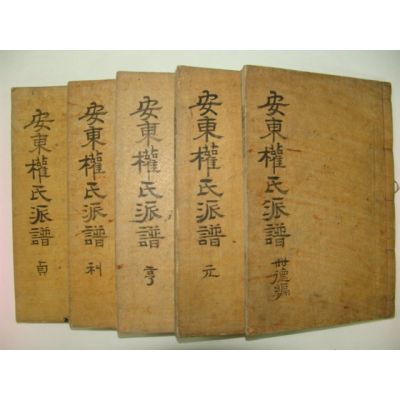 安東權氏派譜 世德編
安東權氏派譜 元
安東權氏派譜 亨
安東權氏派譜 利
安東權氏派譜 貞